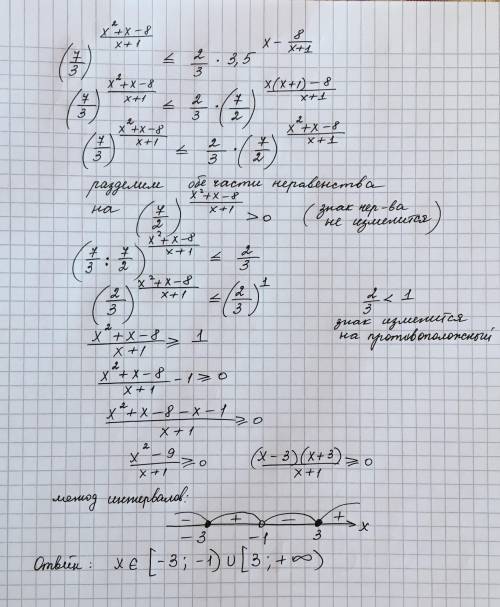 (7/3)^((x²+x-8)/(x+1)) ≤ 2/3 · 3,5^(x - 8/(x+1))
(7/3)^((x²+x-8)/(x+1)) ≤ 2/3 · (7/2)^((x(x+1)-8)/(x+1))
(7/3)^((x²+x-8)/(x+1)) ≤ 2/3 · (7/2)^((x²+x-8)/(x+1))
разделим обе части неравенства
на (7/2)^((x²+x-8)/(x+1)) > 0 (знак нер-ва не изменится)
(7/3 : 7/2)^((x²+x-8)/(x+1)) ≤ 2/3
(2/3)^((x²+x-8)/(x+1)) ≤ (2/3)^1 2/3 < 1
знак изменится
на противоположный
(x²+x-8)/(x+1) ≥ 1
(x²+x-8)/(x+1) - 1 ≥ 0
(x²+x-8-x-1)/(x+1) ≥ 0
(x²-9)/(x+1) ≥ 0 ((x-3)(x+3))/(x+1) ≥ 0
метод интервалов:
- + - +
-3 -1 3 x
Ответ: x ∈ [-3; -1) ∪ [3; +∞)